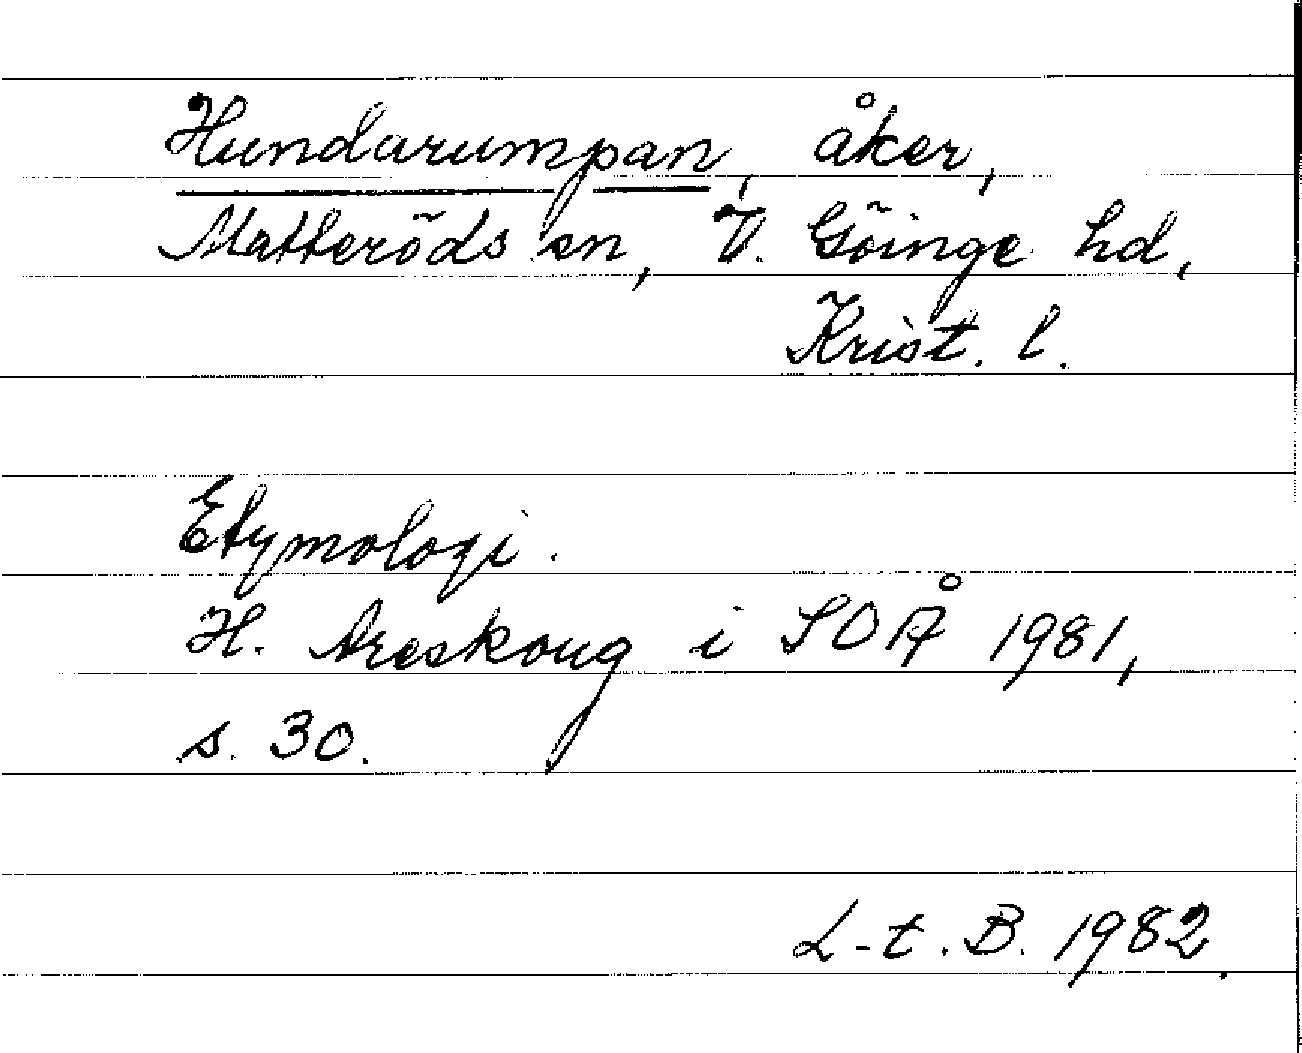 Hundarumpan, åker,
Matteröds sn, V. Göinge hd,
Krist. l.
Etymologi.
H. Areskoug i SOÅ 1981,
s. 30.
L-t. B. 1982.